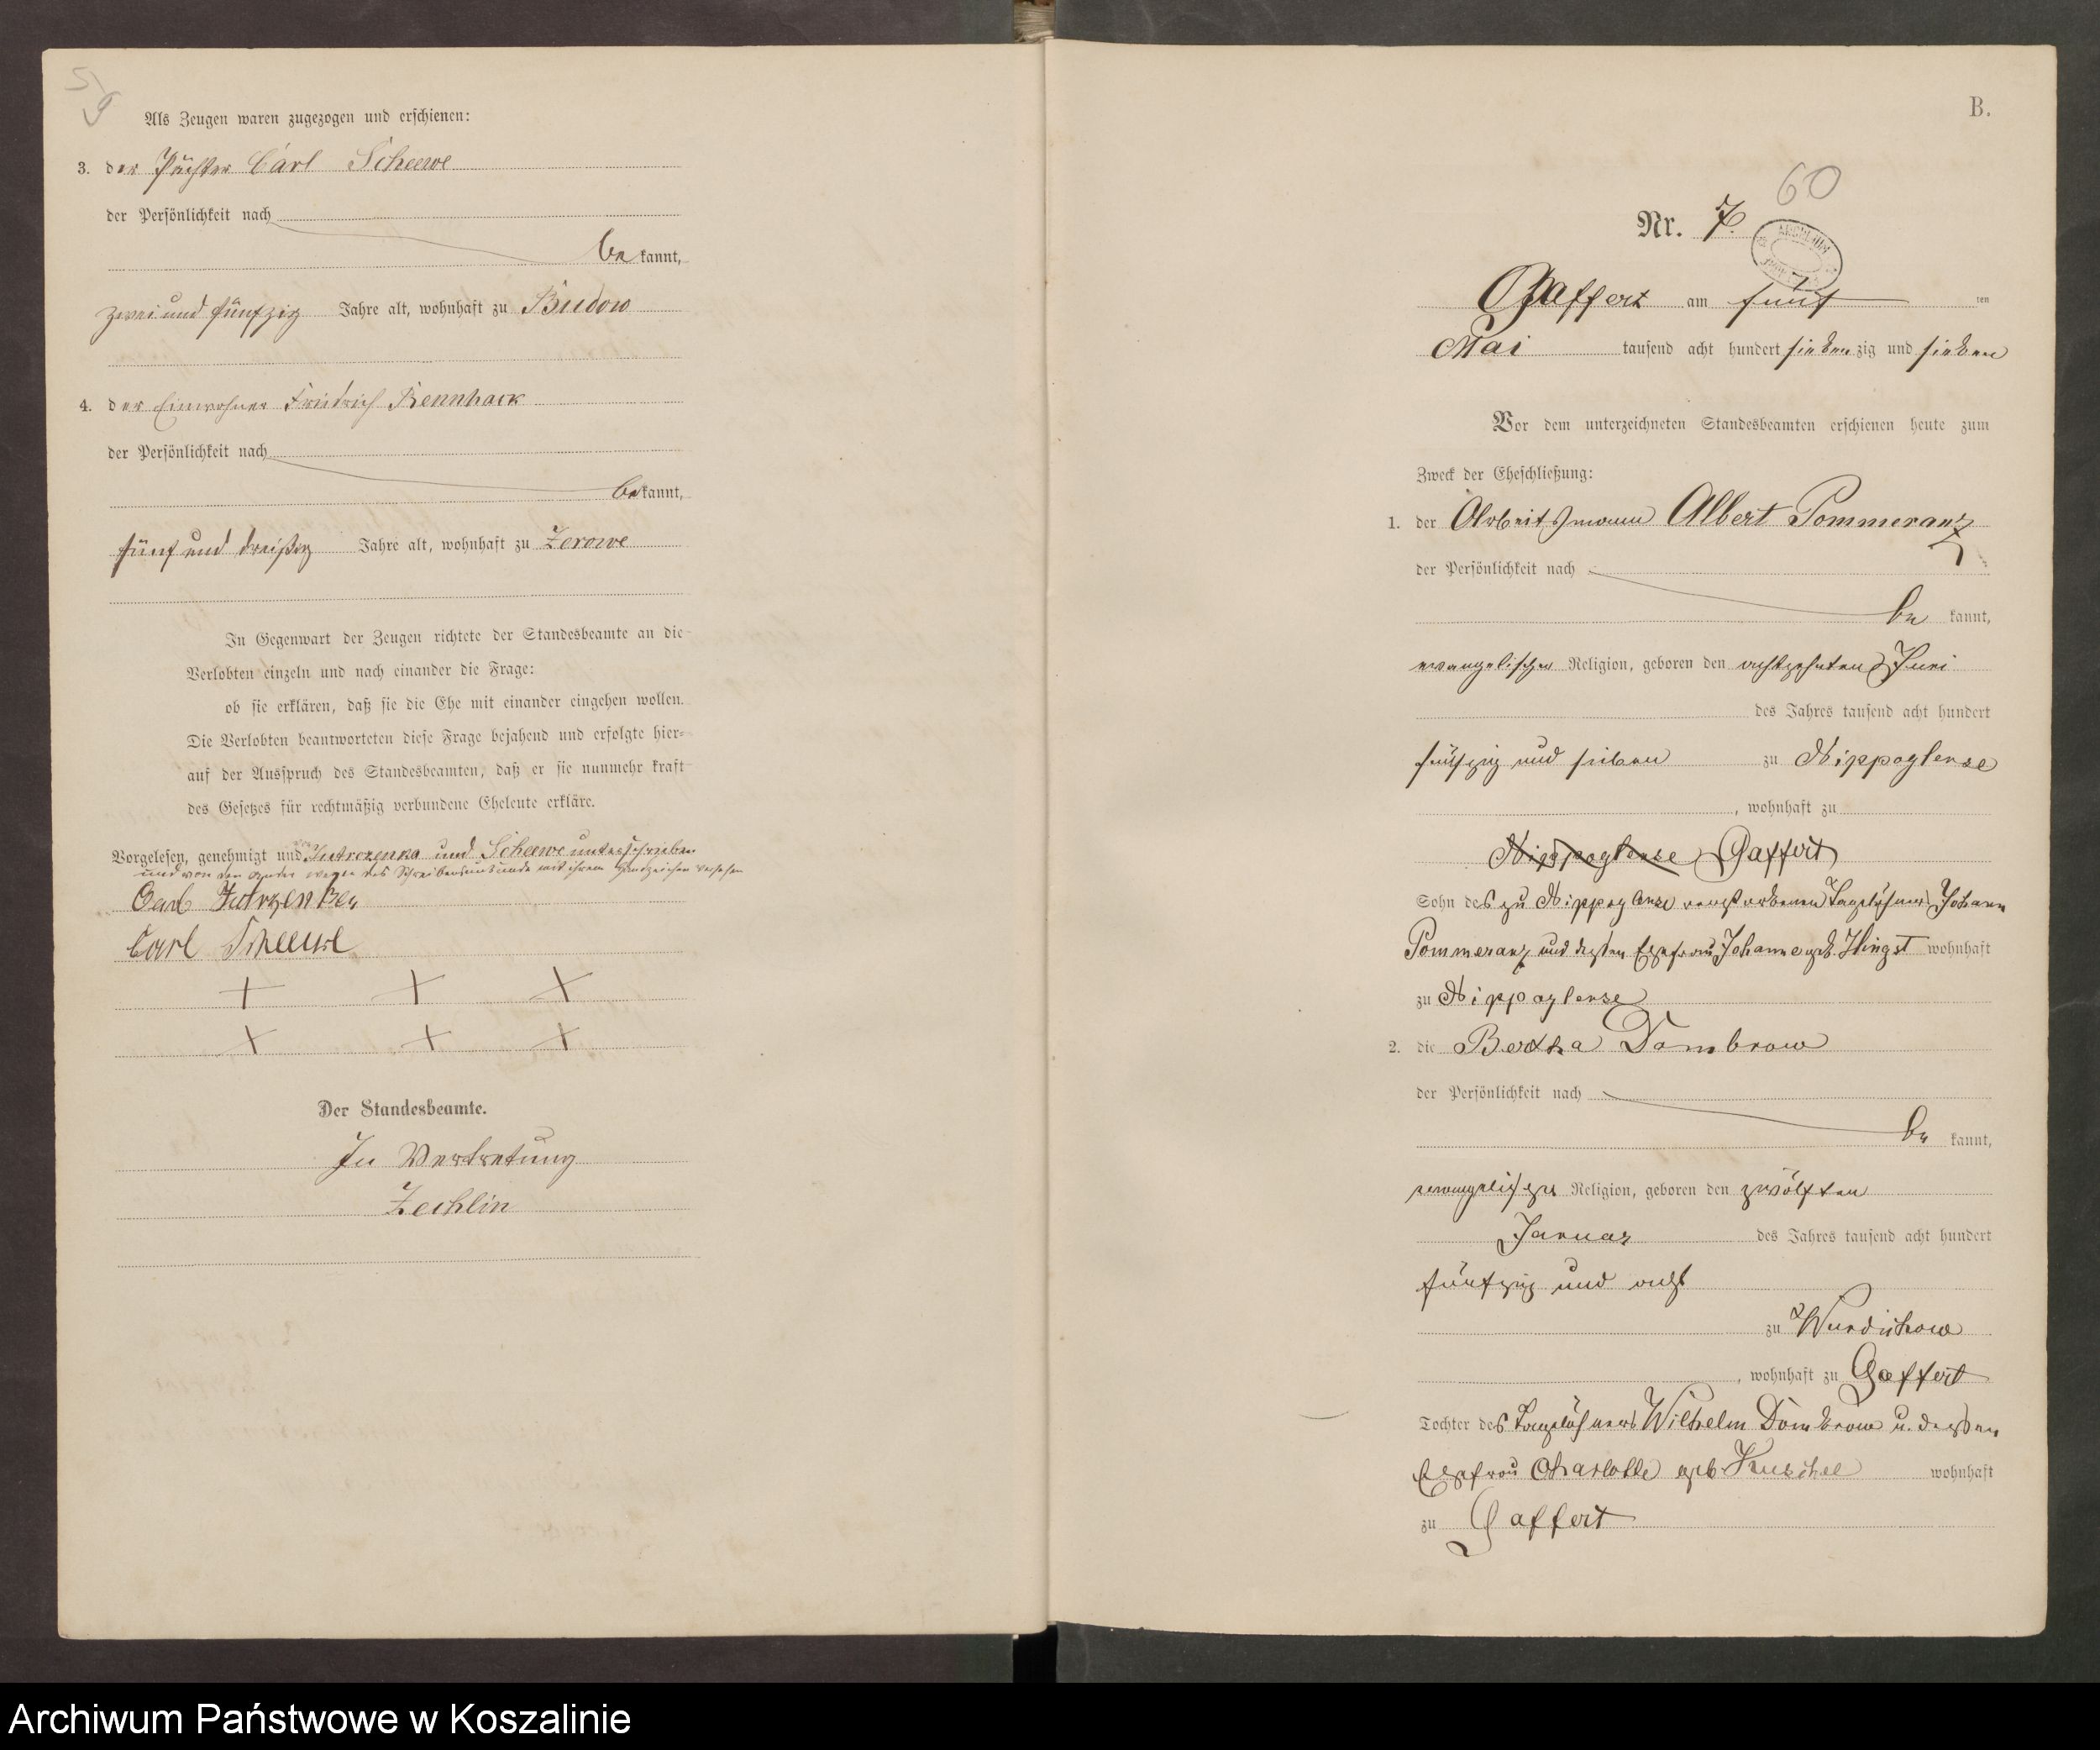 59
Als Zeugen waren zugezogen und erschienen:
3. der Pächter Carl Scheewe
der Persönlichkeit nach
be kannt,
zwei und fünfzig Jahre alt, wohnhaft zu Budow
4. der Einwohner Friedrich Rennhack
der Persönlichkeit nach
be kannt,
fünf und dreißig Jahre alt, wohnhaft zu Zerowe
In Gegenwart der Zeugen richtete der Standesbeamte an die
Verlobten einzeln und nach einander die Frage:
ob sie erklären, daß sie die Ehe mit einander eingehen wollen.
Die Verlobten beantworteten diese Frage bejahend und erfolgte hier-
auf der Ausspruch des Standesbeamten, daß er sie nunmehr kraft
des Gesetzes für rechtmäßig verbundene Eheleute erkläre.
Vorgelesen, genehmigt und von Jutrzenka und Scheewe unterschrieben
und von den wegen des Schreibens mit ihrem Handzeichen versehen
Carl Jutrzenka
Carl Scheewe
+ + +
+ + +
Der Standesbeamte.
In Vertretung
Zechlin
B.
60
Nr. 7.
Gaffert am fünf ten
Mai tausend acht hundert siebenzig und sieben
Vor dem unterzeichneten Standesbeamten erschienen heute zum
Zweck der Eheschließung:
1. der Arbeitsmann Albert Pommeranz
der Persönlichkeit nach
be kannt,
evangelischer Religion, geboren den achtzehnten Juni
des Jahres tausend acht hundert
fünfzig und sieben zu Nippoglense
, wohnhaft zu
Nippoglense Gaffert
Sohn des zu Nippoglense verstorbenen Tagelöhners Johann
Pommeranz und dessen Ehefrau Johanne geb. Hingst wohnhaft
zu Nippoglense
2. die Bertha Dombrow
der Persönlichkeit nach
be kannt,
evangelischer Religion, geboren den zwölften
Januar des Jahres tausend acht hundert
fünfzig und acht
zu Wundichow
, wohnhaft zu Gaffert
Tochter des Tagelöhners Wilhelm Dombrow u. dessen
Ehefrau Charlotte geb. Kuschel wohnhaft
zu Gaffert
Archiwum Państwowe w Koszalinie